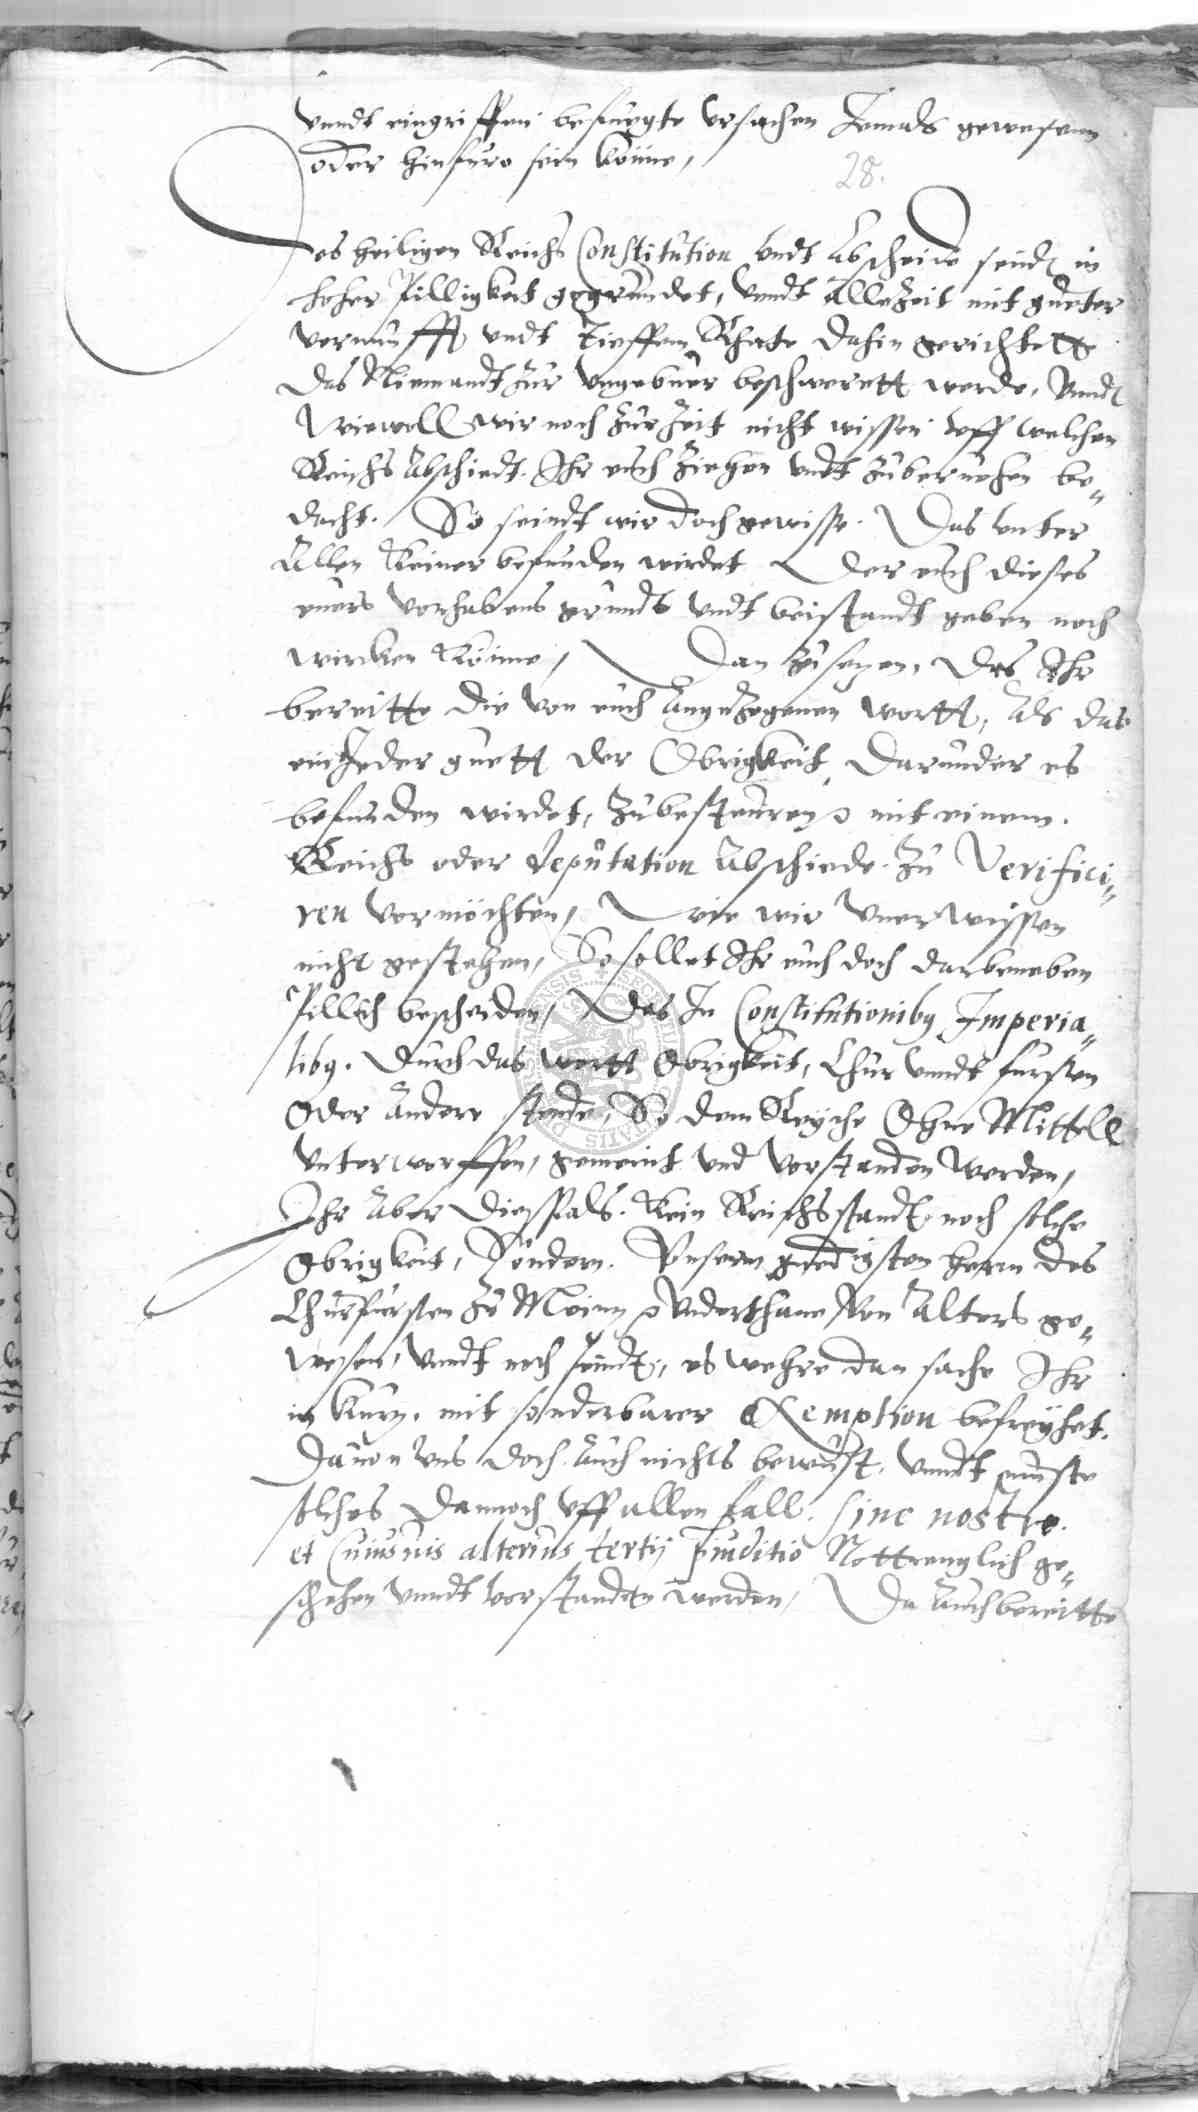 vnndt eingriffenn befuegte vrsachen Jemals gewesenn
oder hinfuro sein könne,
28.
Des heiligen Reichs Constitution vndt Abscheide seindt in
hoher Pilligkeit gegrundet, vnndt Allezeit mit gueter
vernunfft vndt tieffem Rhate dahin gerichtett
das Niemandt zur vngebuer beschwerett werde, Vnndt
Wiewoll wir noch zur Zeit nicht wissen vff welchen
Reichs Abschiedt Ihr euch ziehen vndt zuberuehen be„
dacht. So seindt wir doch gewisse. Das vnter
Allen Keiner befunden wirdet Der euch dieses
euers vorhabens grundt vndt beistandt geben noch
wircken könne, Dan zusegen, Das Ihr
bereitte die von euch Angezogenen wortt, Als das
ein Jeder guett der Obrigkeit, Darunder es
befunden wirdet, zubesteuren mit einem
Reichs oder Deputation Abschiede zu Verifici„
ren vermöchten, Wie wir vnerwissen
nicht gestehen, So sollet Ihr euch doch darbeneben
Pillich bescheiden, Das In Constitutionibus Imperia„
libus. Durch das wortt Obrigkeit, Chur vnndt fursten
Oder Andere stende, So dem Reyche Ohne Mittell
vnterworffen, gemeint vnd verstanden werden,
Ihr Aber Diesfals. Kein Reichsstandt noch solche
Obrigkeit, Sondern. Vnserm gnedigsten herrn des
Churfursten zu Meintz Vnderthane Von Alters ge„
wesen, vnndt noch seindt, es wehre dan sache Ihr
in kurtz. mit sonderbarer Exemption befreyhet.
Dauon vns doch Auch nichts bewust, vnndt muste
solches Dannoch vff allen fall. sine nostro
et Cuiusuis alterius tertij preiuditio Nottrenglich ge„
schehen vnndt verstanden werden, Da Auch bereitte